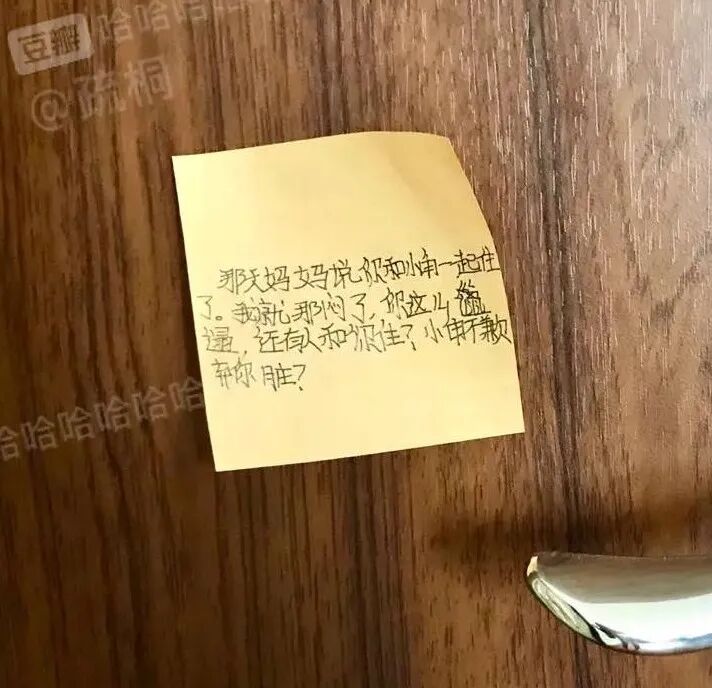 豆瓣 哈哈哈
@硫桐
那天妈妈说你和小一起住
了。我就那闷了,你这么
遢,还有人和你住?小不歉
弃你脏?
哈哈哈哈哈哈